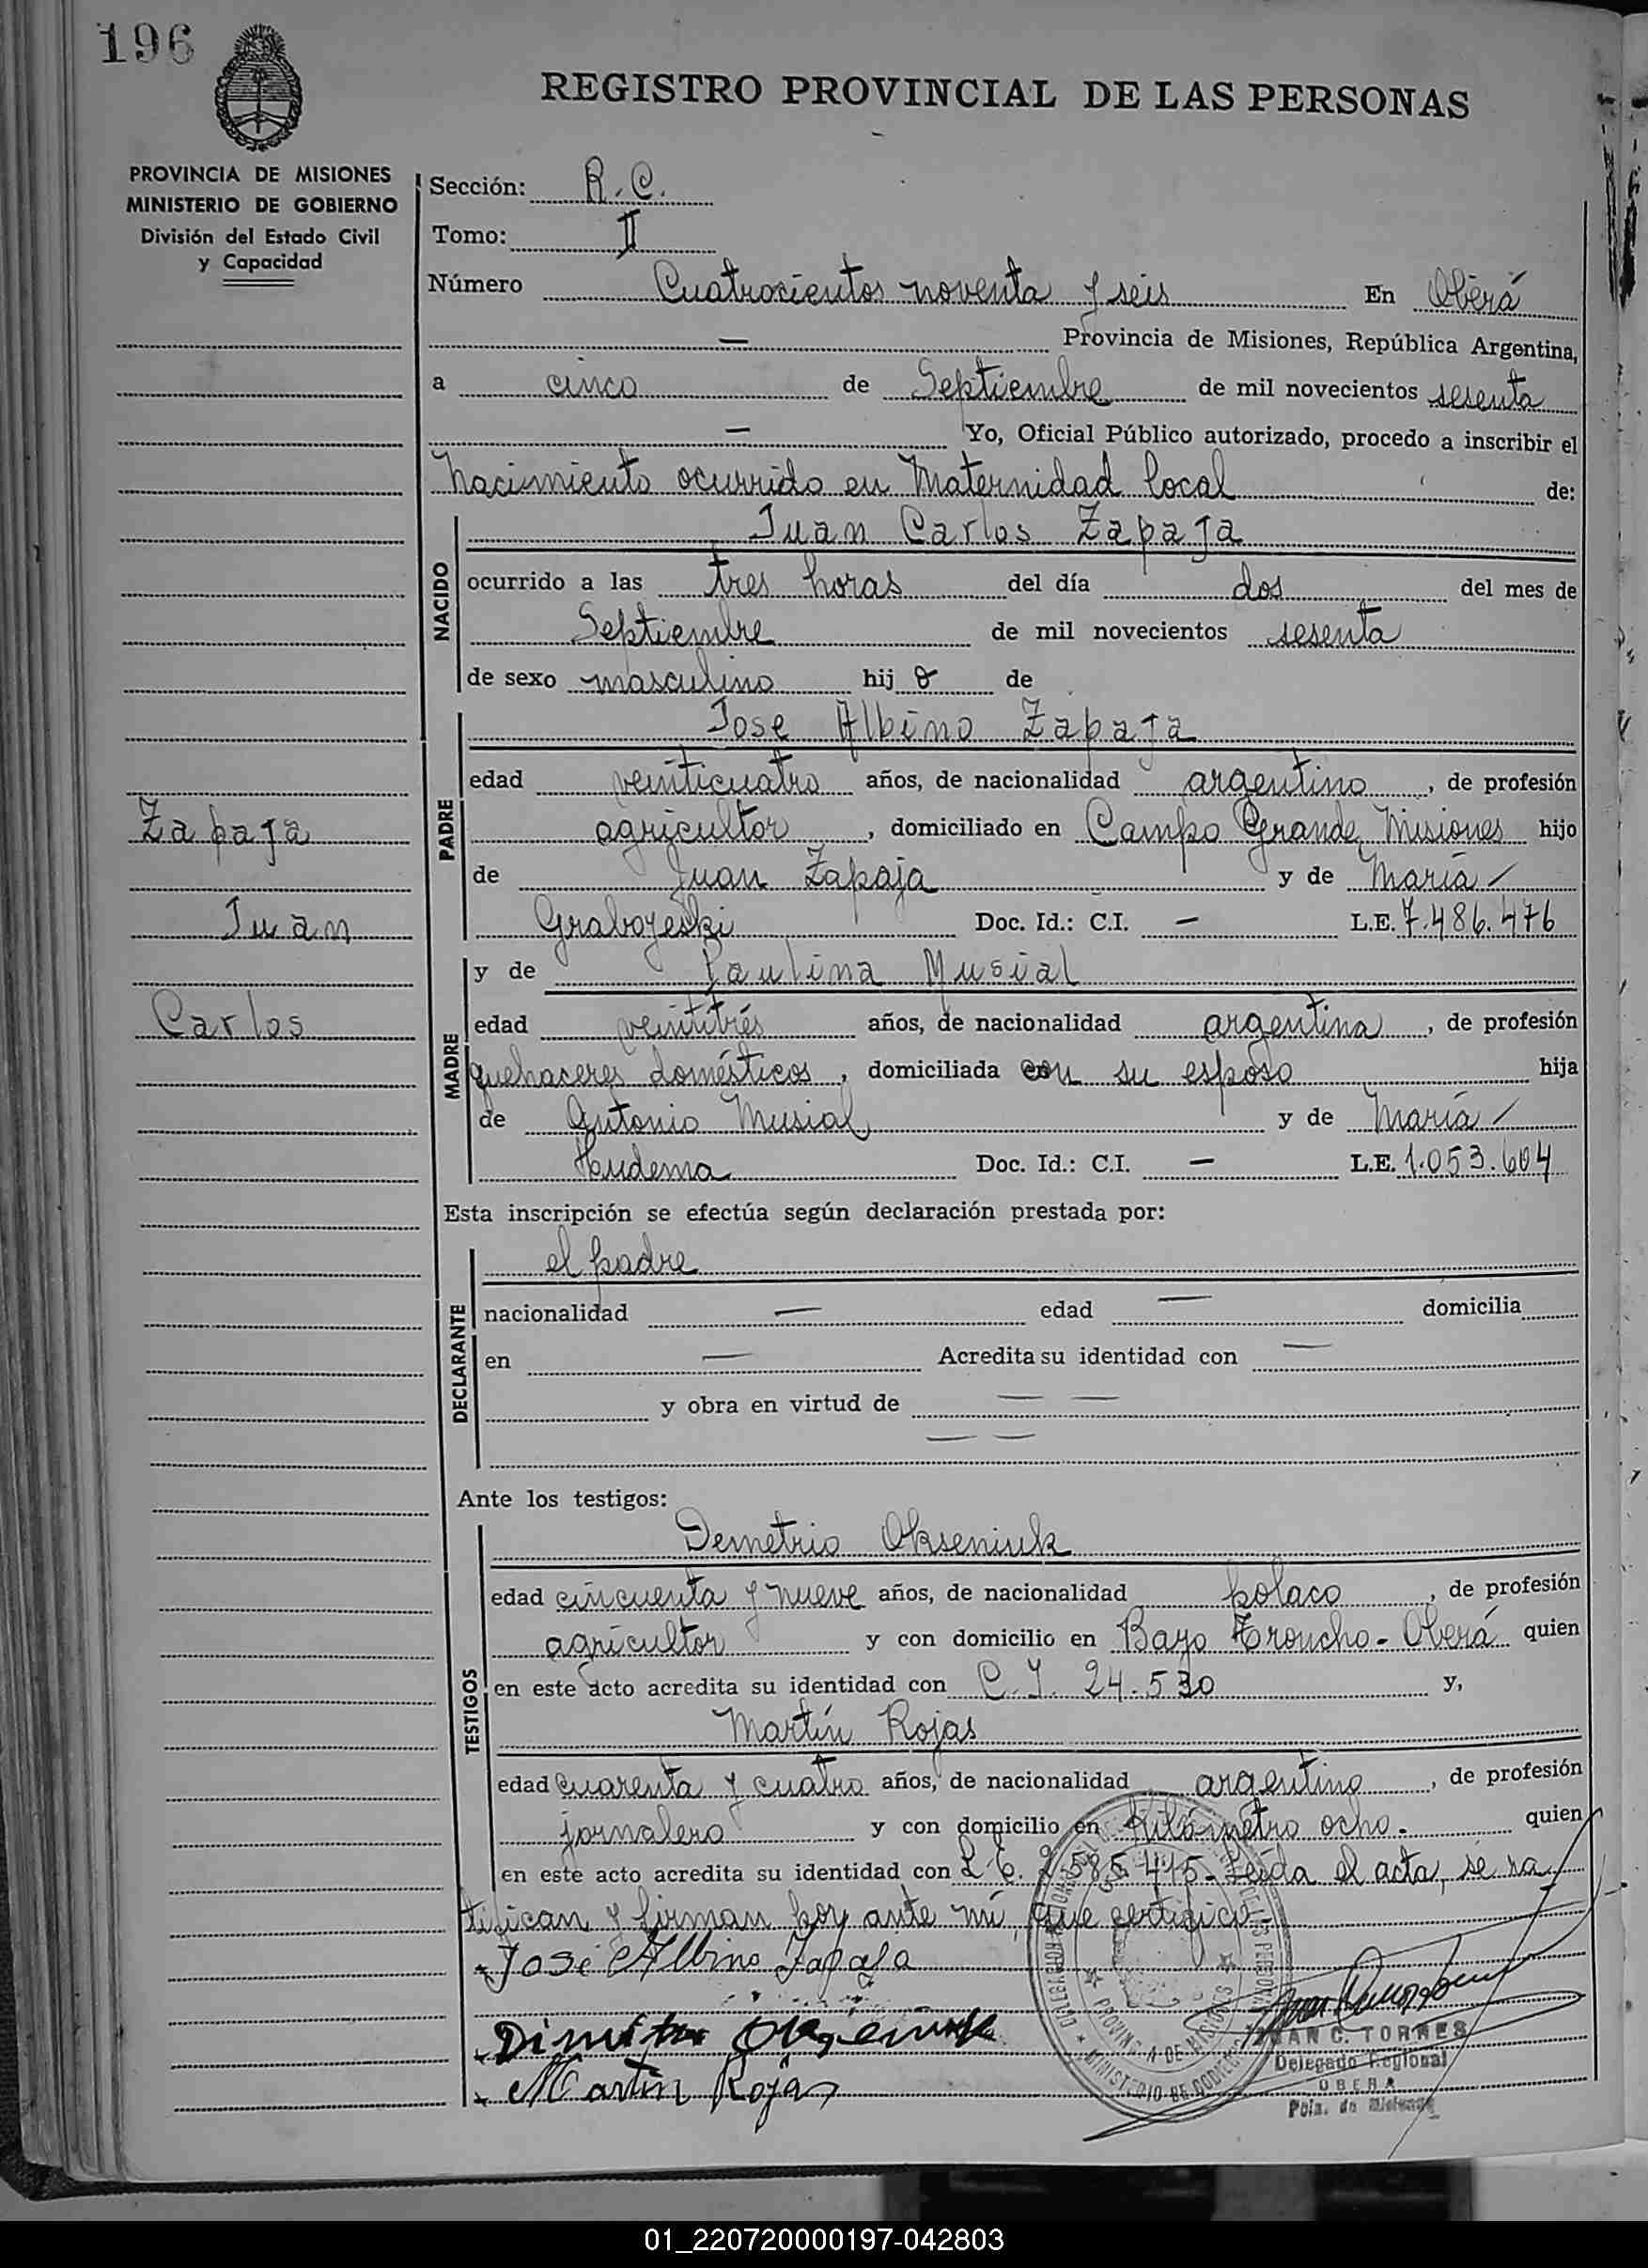 196
REGISTRO PROVINCIAL DE LAS PERSONAS
PROVINCIA DE MISIONES
MINISTERIO DE GOBIERNO
División del Estado Civil
y Capacidad
Sección: R. C.
Tomo: II
Número Cuatrocientos noventa y seis En Oberá
— Provincia de Misiones, República Argentina,
a cinco de Septiembre de mil novecientos sesenta
— Yo, Oficial Público autorizado, procedo a inscribir el
Nacimiento ocurrido en Maternidad local de:
NACIDO
Juan Carlos Zapaja
ocurrido a las tres horas del día dos del mes de
Septiembre de mil novecientos sesenta
de sexo masculino hij o de
PADRE
Jose Albino Zapaja
edad veinticuatro años, de nacionalidad argentino, de profesión
agricultor, domiciliado en Campo Grande, Misiones hijo
de Juan Zapaja y de María
Grabojeski Doc. Id.: C.I. — L.E. 7.486.476
Zapaja
Juan
Carlos
MADRE
y de Paulina Musial
edad veintitrés años, de nacionalidad argentina, de profesión
quehaceres domésticos, domiciliada con su esposo hija
de Antonio Musial y de María
Hudema Doc. Id.: C.I. — L.E. 1.053.604
Esta inscripción se efectúa según declaración prestada por:
DECLARANTE
el padre
nacionalidad — edad — domicilia
en — Acredita su identidad con —
y obra en virtud de — —
— —
Ante los testigos:
TESTIGOS
Demetrio Okseniuk
edad cincuenta y nueve años, de nacionalidad polaco, de profesión
agricultor y con domicilio en Bayo Troncho - Oberá quien
en este acto acredita su identidad con C.I. 24.530 y,
Martín Rojas
edad cuarenta y cuatro años, de nacionalidad argentino, de profesión
jornalero y con domicilio en Kilómetro ocho. quien
en este acto acredita su identidad con L.E. 2.585.415. Leida el acta, se ra
tifican y firman hoy ante mí, que certifico
José Albino Zapaja
Martin Rojas
PROVINCIA DE MISIONES
MINISTERIO DE GOBIERNO
JUAN C. TORRES
Delegado Regional
OBERA
Pcia. de Misiones
01_220720000197-042803